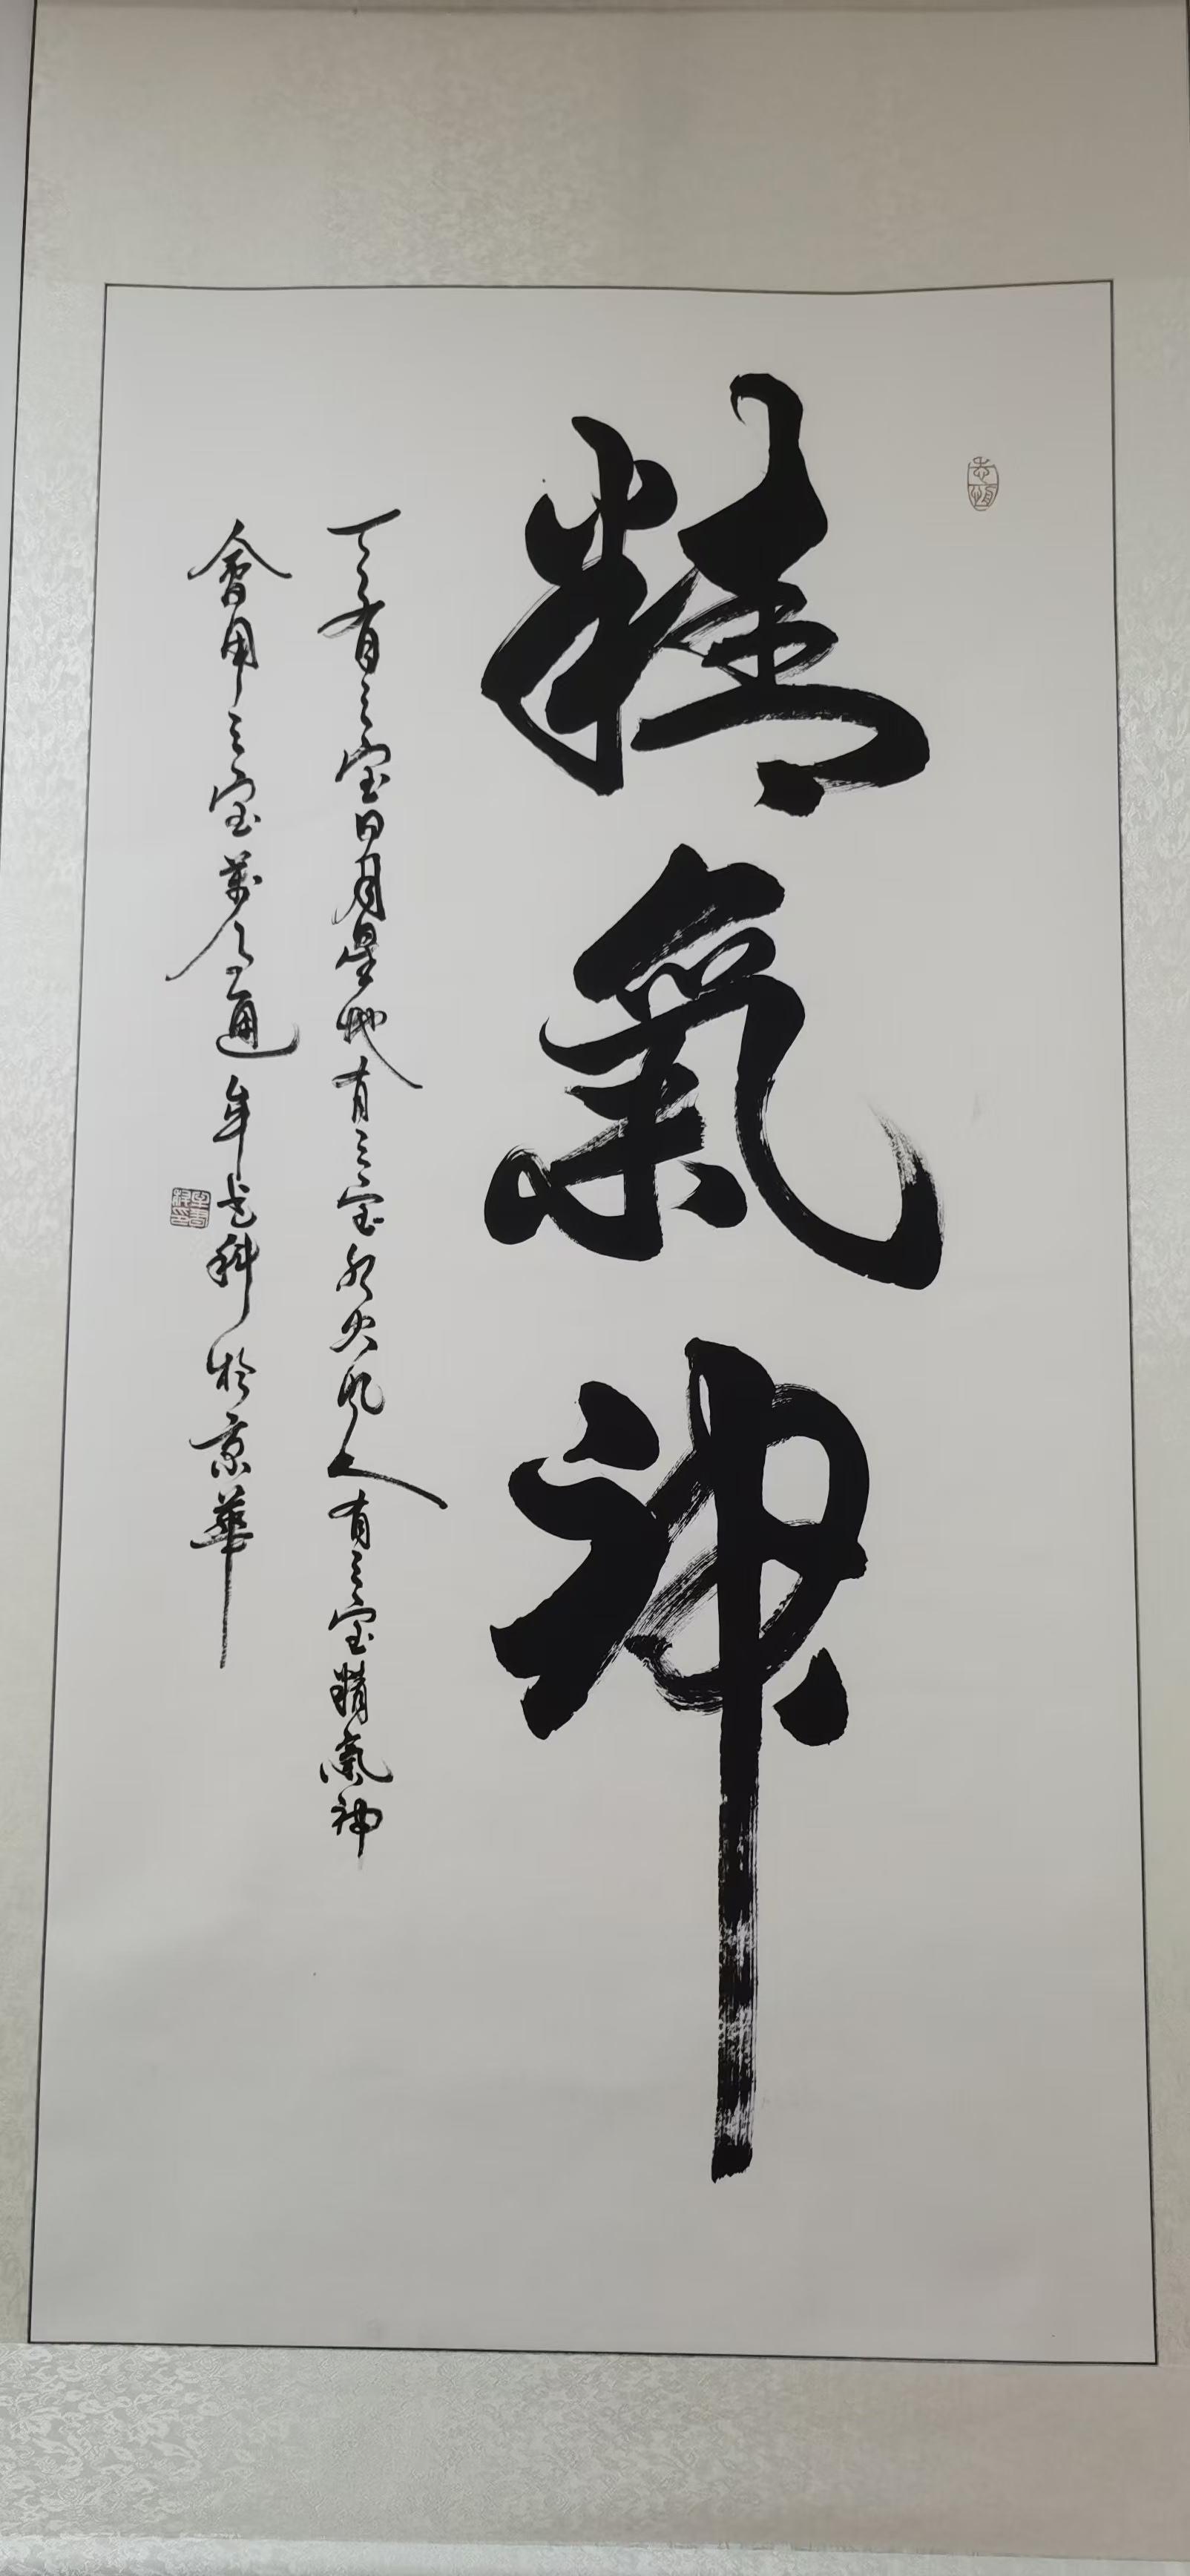 精氣神
天有三宝日月星地有三宝水火风人有三宝精氣神
會用三宝萬事通牟 科於京華